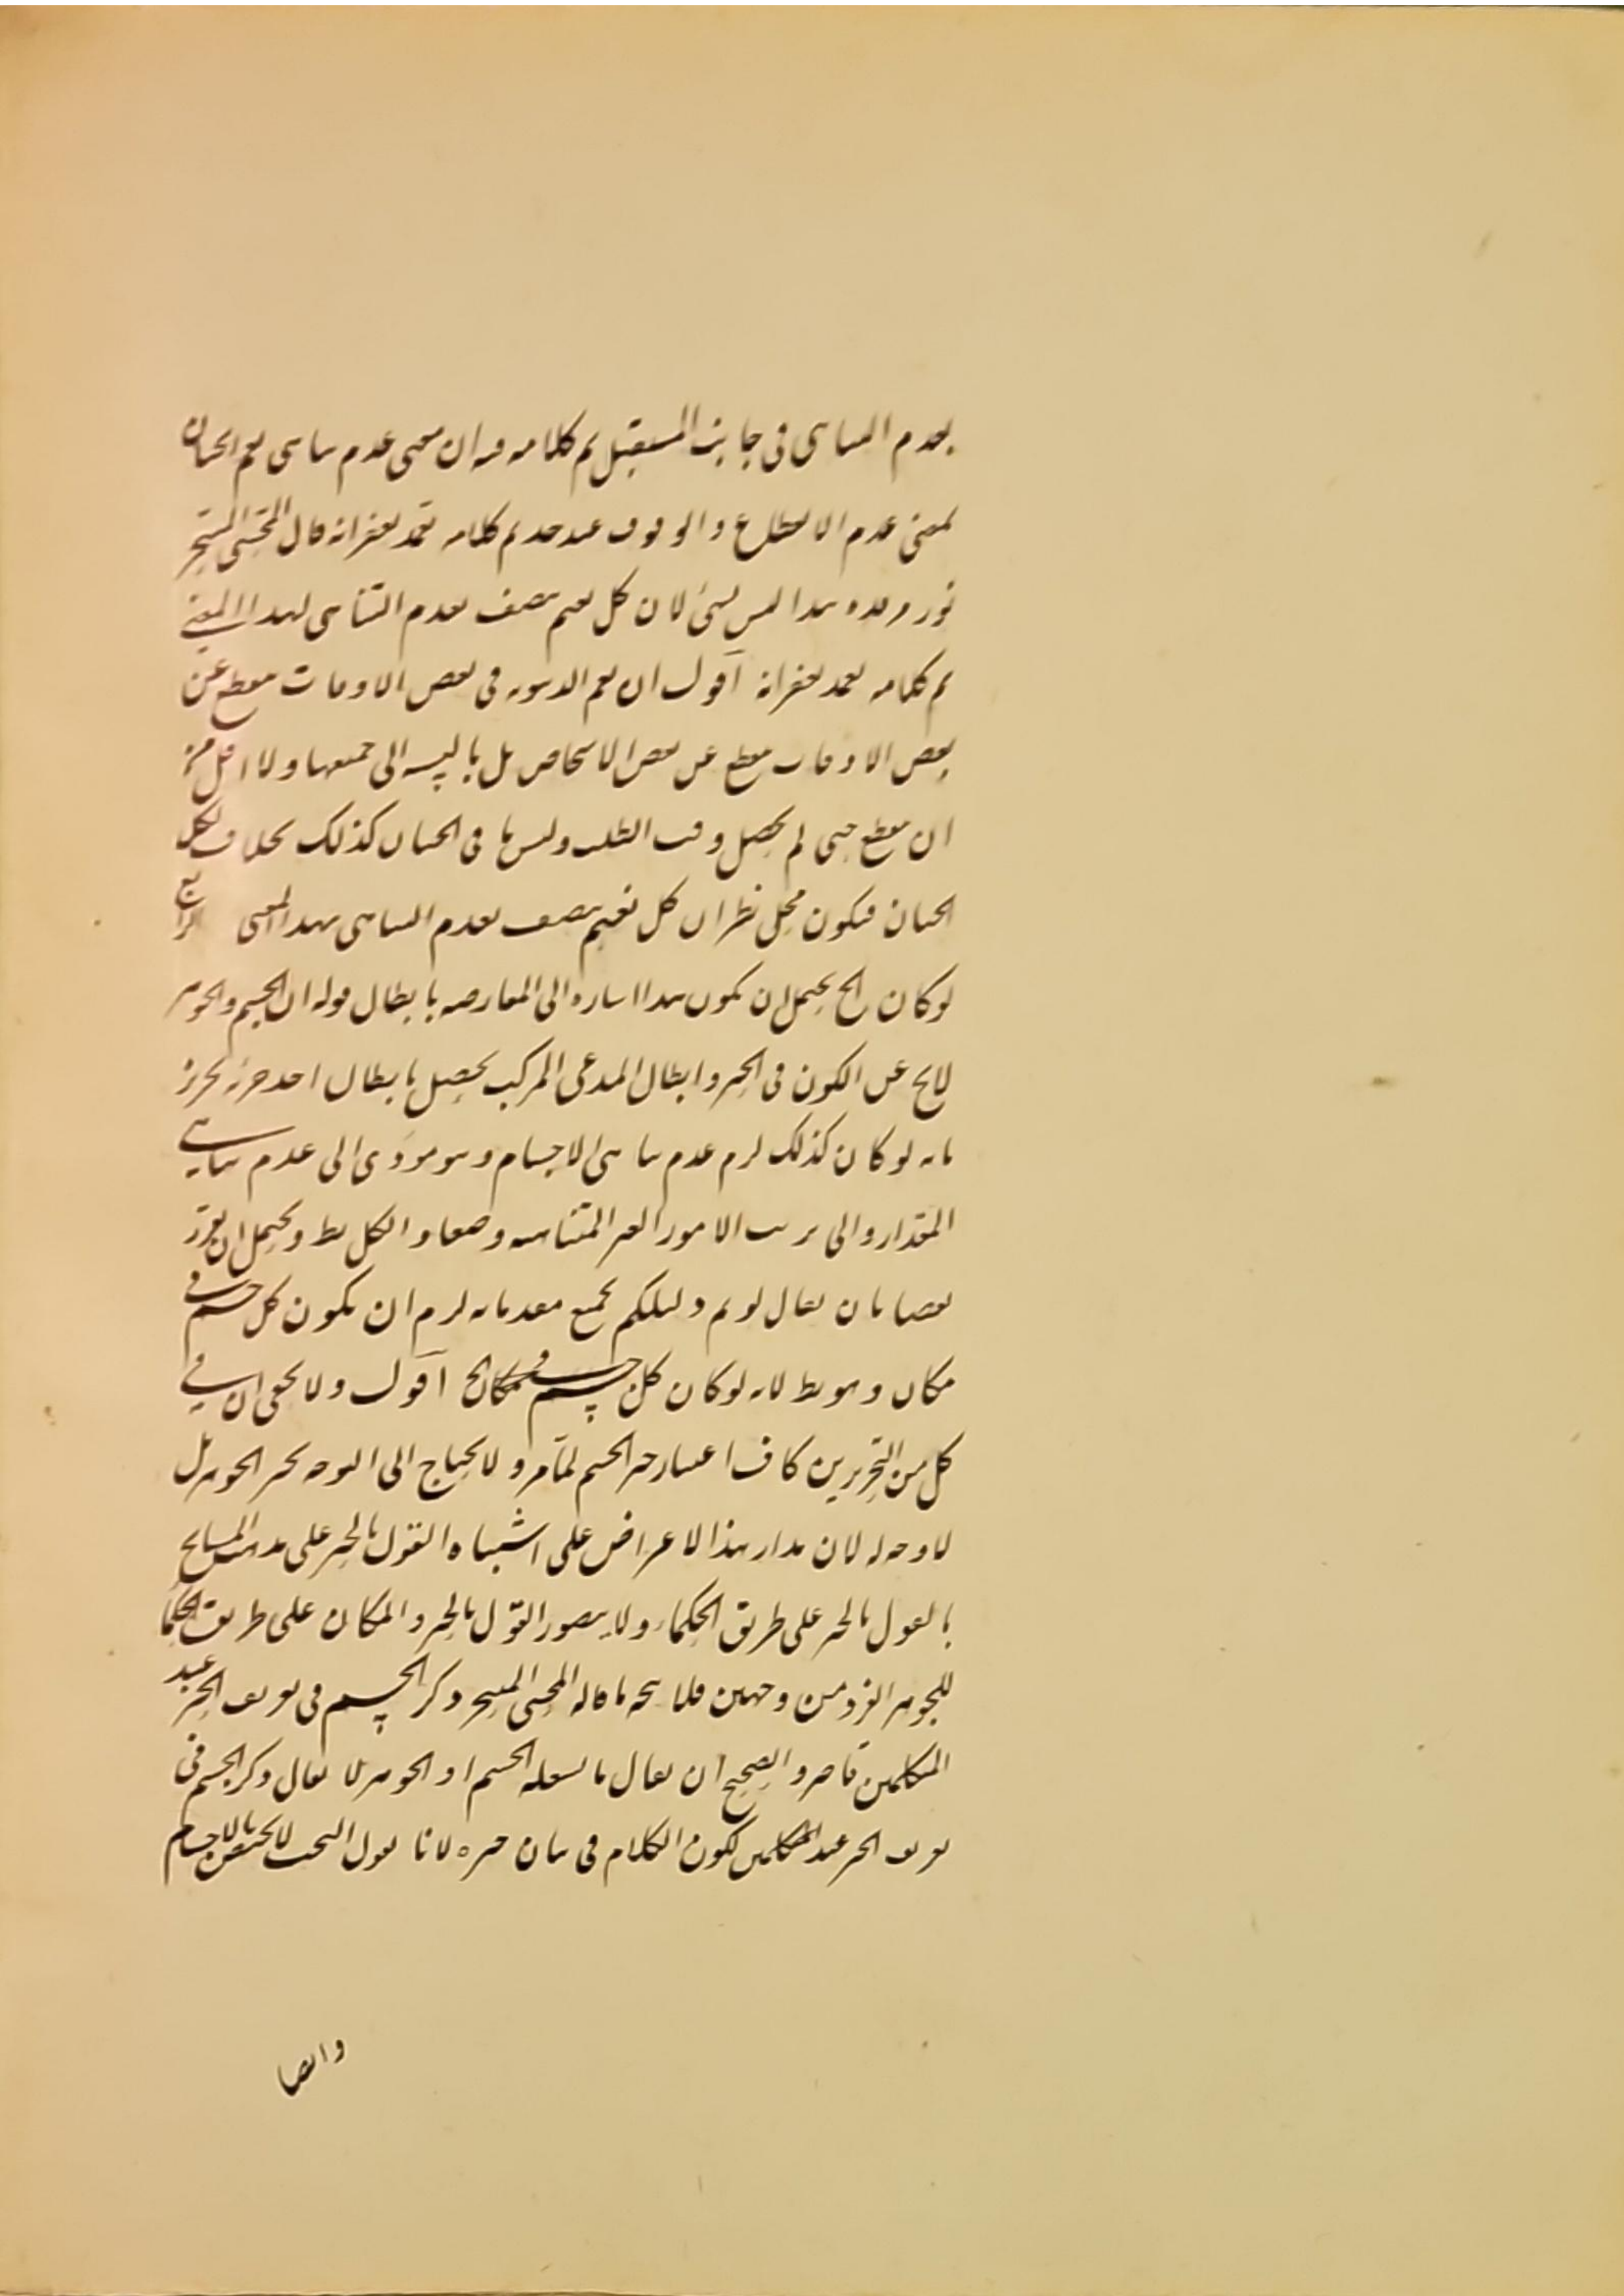 بعدم التناهى فى جانب المستقبل تم كلامه فيه ان معنى عدم تناهى نعم الجنان
بمعنى عدم الانقطاع والوقوف عند حد تم كلامه تغمد بغفرانه قال المحشى المتبحر
نور مرقده هذا ليس بشئ لان كل نعيم يتصف بعدم التناهى لهذا المعنى
تم كلامه تغمد بغفرانه اقول ان نعم الدنيوية فى بعض الاوقات منقطع عن
بعض الاوقات منقطع عن بعض الاشخاص بل بالنسبة الى جميعها ولا اقل من
ان ينقطع حتى لم يحصل وقت الطلب وليس ما فى الجنان كذلك بخلاف اكل
الجنان فيكون محل نظر ان كل نعيم يتصف بعدم التناهى بهذا المعنى الرابع
لو كان الخ يحتمل ان يكون هذا اشارة الى المعارضة بابطال قوله ان الجسم والجوهر
لا يخ عن الكون فى الحيز وابطال المدعى المركب يحصل بابطال احد جزئيه تحرز
بانه لو كان كذلك لزم عدم تناهى الاجسام وهو مؤدى الى عدم تناهى
المقدار والى ترتب الامور الغير المتناهية وضعا والكل بط ويحتمل ان يقرر
نقضا بان يقال لو تم دليلكم بجميع مقدماته لزم ان يكون كل جسم فى
مكان وهو بط لانه لو كان كل جسم فى مكان الخ اقول ولا يخفى ان فى
كل من التحريرين كاف اعتبار حيز الجسم لما مر ولا يحتاج الى التوجه بحيز الجوهر بل
لا وجه له لان مدار هذا الاعتراض على اشتباه القول بالحيز على مذهب المشايخ
بالقول بالحيز على طريق الحكماء ولا يتصور القول بالحيز والمكان على طريق الحكما
للجوهر الفرد من وجهين فلا يتجه ما قاله المحشى المتبحر ذكر الجسم فى تعريف الحيز عند
المتكلمين قاصر والصحيح ان يقال ما يشغله الجسم او الجوهر لا يقال ذكر الجسم فى
تعريف الحيز عند المتكلمين لكون الكلام فى بيان حيزه لانا نقول البحث لا يختص بالاجسام
وايضا